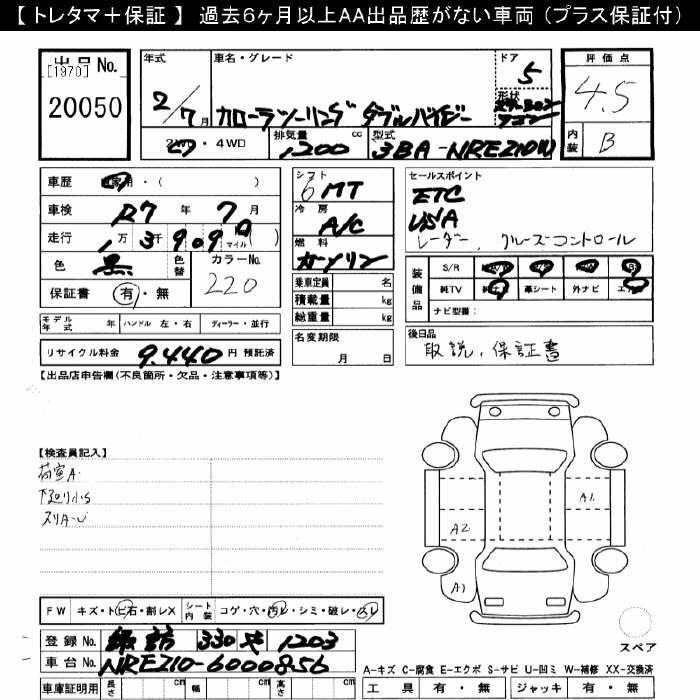 【 トレタマ＋保証 】 過去6ヶ月以上AA出品歴がない車両（プラス保証付）
出品 No.
[1970]
20050
年式 車名・グレード ドア 評価点
2/7月 カローラツーリング ダブルバイビー 5 4.5
形状
ステーションワゴン
2WD・4WD 排気量 cc 型式 内装
1,200 3BA-NRE210W B
車歴 自家用・( )
車検 R7 年 7月
走行 1万3千909 マイル( )
色 黒 色替 カラーNo. 220
保証書 有・無
モデル年式 年 ハンドル 左・右 ディーラー・並行
リサイクル料金 9,440 円 預託済
シフト 6MT
冷房 A/C
燃料 ガソリン
乗車定員 名
積載量 kg
総重量 kg
名変期限
月 日
セールスポイント
ETC
USA
レーダー、クルーズコントロール
装備品 S/R
純TV 革シート 外ナビ
ナビ型番:
後日品
取説、保証書
【出品店申告欄(不良箇所・欠品・注意事項等)】
【検査員記入】
荷室A
下廻り小S
スリA-U
A1
A2
A1
スペア
FW キズ・トビ石・割レX シート内装 コゲ・穴・汚レ・シミ・破レ・スレ
登録No. 諏訪 330 や 1203
車台No. NREZ10-6000856
車庫証明用 長さ cm 幅 cm 高さ cm
A-キズ C-腐食 E-エクボ S-サビ U-凹ミ W-補修 XX-交換済
工具 有・無 ジャッキ 有・無